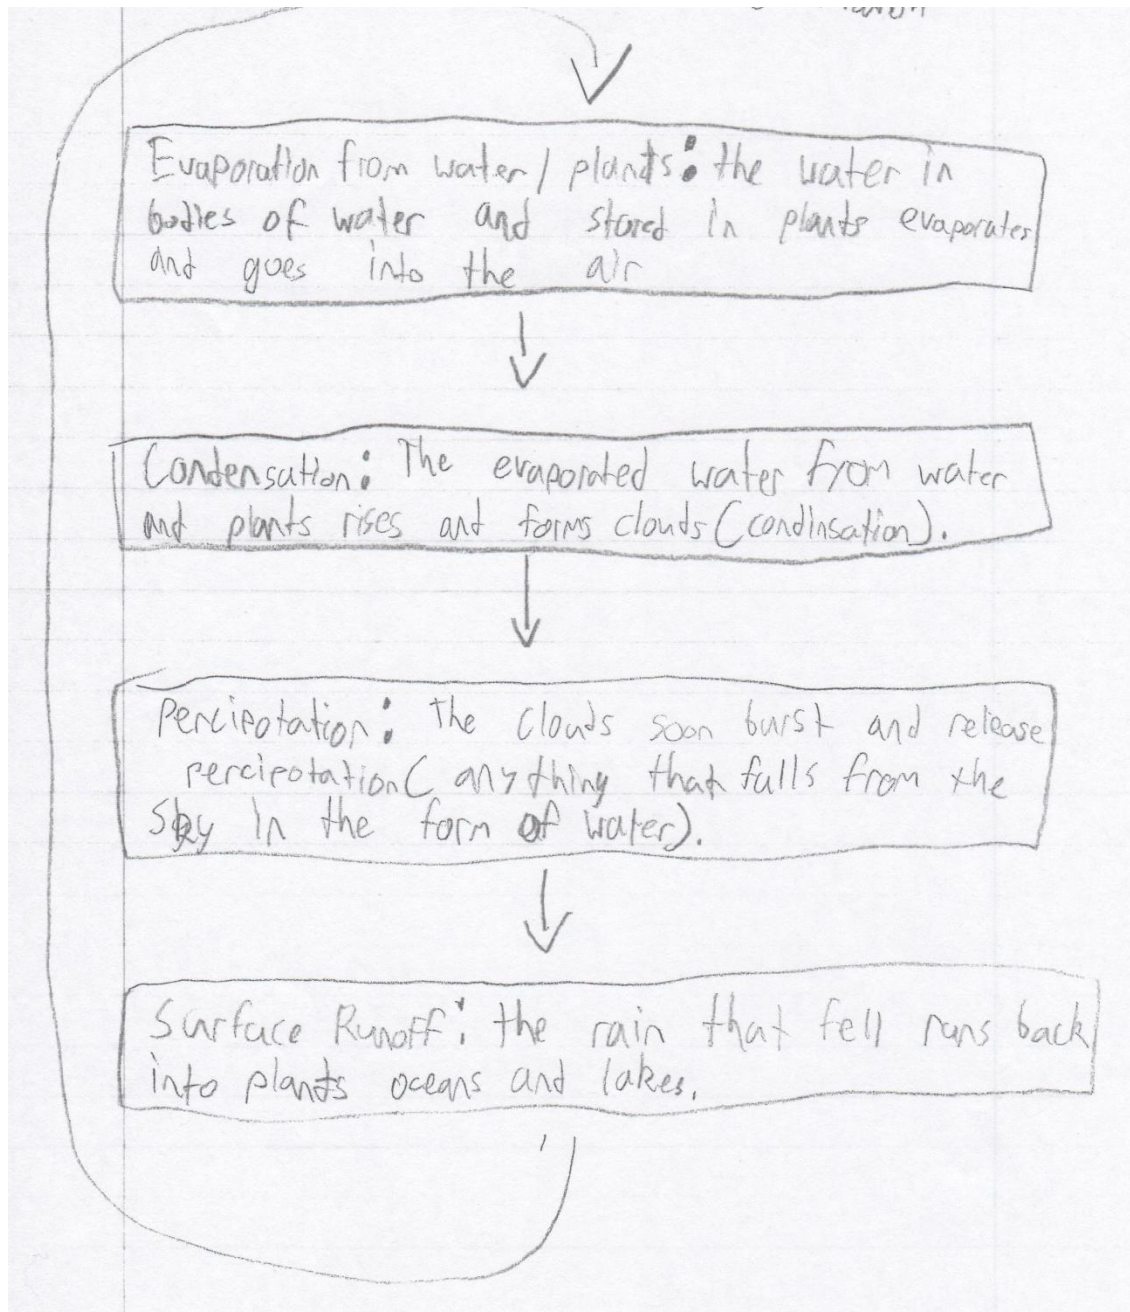 Evaporation from water / plants: the water in
bodies of water and stored in plants evaporates
and goes into the air
Condensation: The evaporated water from water
and plants rises and forms clouds (condinsation).
Percipotation: The clouds soon burst and release
percipotation (anything that falls from the
sky in the form of water).
Surface Runoff: the rain that fell runs back
into plants oceans and lakes.